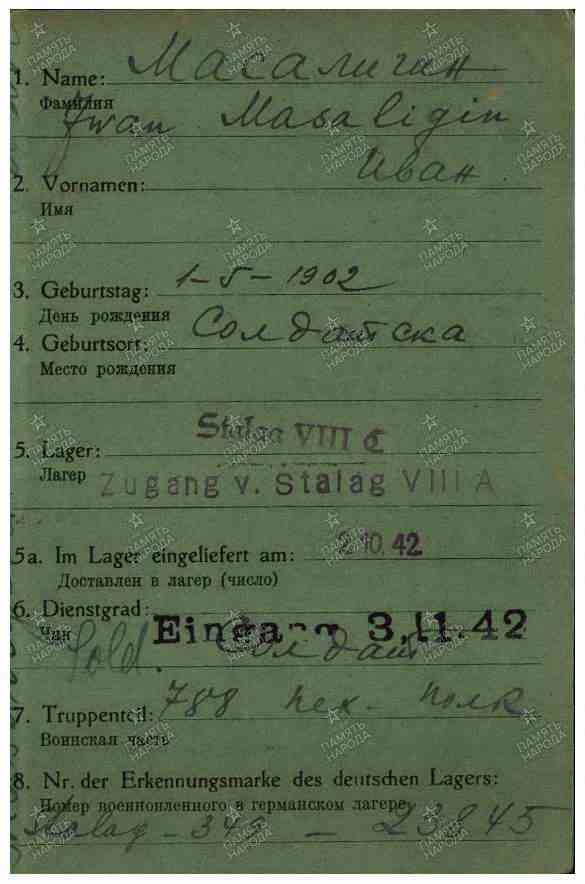 Масалиган
1. Name:
Фамилия
Iwan Masaligin
Иван
2. Vornamen:
Имя
1-5-1902
3. Geburtstag:
День рождения
Солдатска
4. Geburtsort:
Место рождения
Stalag VIII C
5. Lager:
Лагер
Zugang v. Stalag VIII A
5a. Im Lager eingeliefert am: 2.10.42
Доставлен в лагер (число)
6. Dienstgrad:
Чин
Eingang 3.11.42
Sold. Солдат
788 пех. полк
7. Truppenteil:
Воинская часть
8. Nr. der Erkennungsmarke des deutschen Lagers:
Номер военнопленного в германском лагере
Stalag - - 23845
ПАМЯТЬ НАРОДА